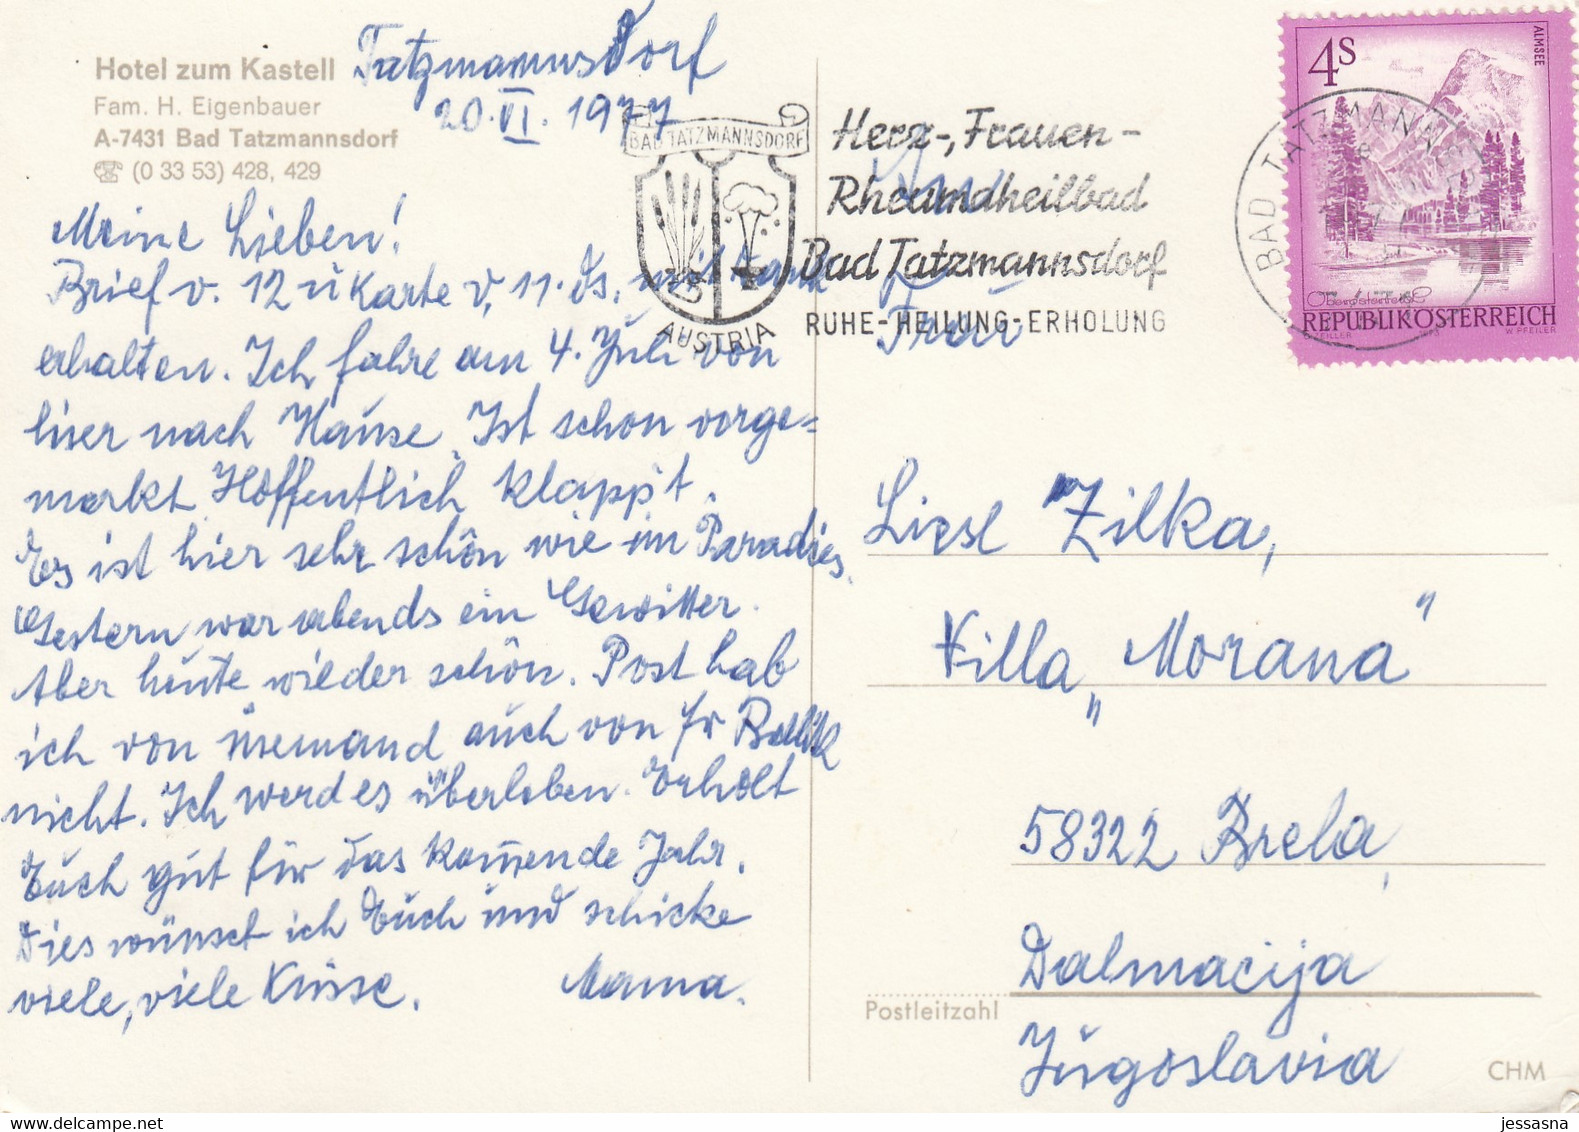 Hotel zum Kastell
Fam. H. Eigenbauer
A-7431 Bad Tatzmannsdorf
☎ (0 33 53) 428, 429
Tatzmannsdorf
20. VI. 1977
Meine Lieben!
Brief v. 12 u Karte v. 11. ds. mit Dank
erhalten. Ich fahre am 4. Juli von
hier nach Hause. Ist schon vorge=
merkt. Hoffentlich klappt.
Es ist hier sehr schön wie im Paradies.
Gestern war abends ein Gewitter.
Aber heute wieder schön. Post hab
ich von niemand auch von Fr
nicht. Ich werd es überleben. Erholt
Euch gut für das kom̅ende Jahr.
Dies wünscht ich Euch und schicke
viele, viele Küsse. Mama.
BAD TATZMANNSDORF
AUSTRIA
Herz-, Frauen-
Rheumaheilbad
Bad Tatzmannsdorf
RUHE-HEILUNG-ERHOLUNG
BAD TATZMANNSD
4S
ALMSEE
Oberösterreich
REPUBLIK ÖSTERREICH
W. PFEILER
Frau
Liesl Zilka,
Villa „Morana"
58322 Brela,
Dalmacija
Jugoslavia
Postleitzahl
CHM
jessasna